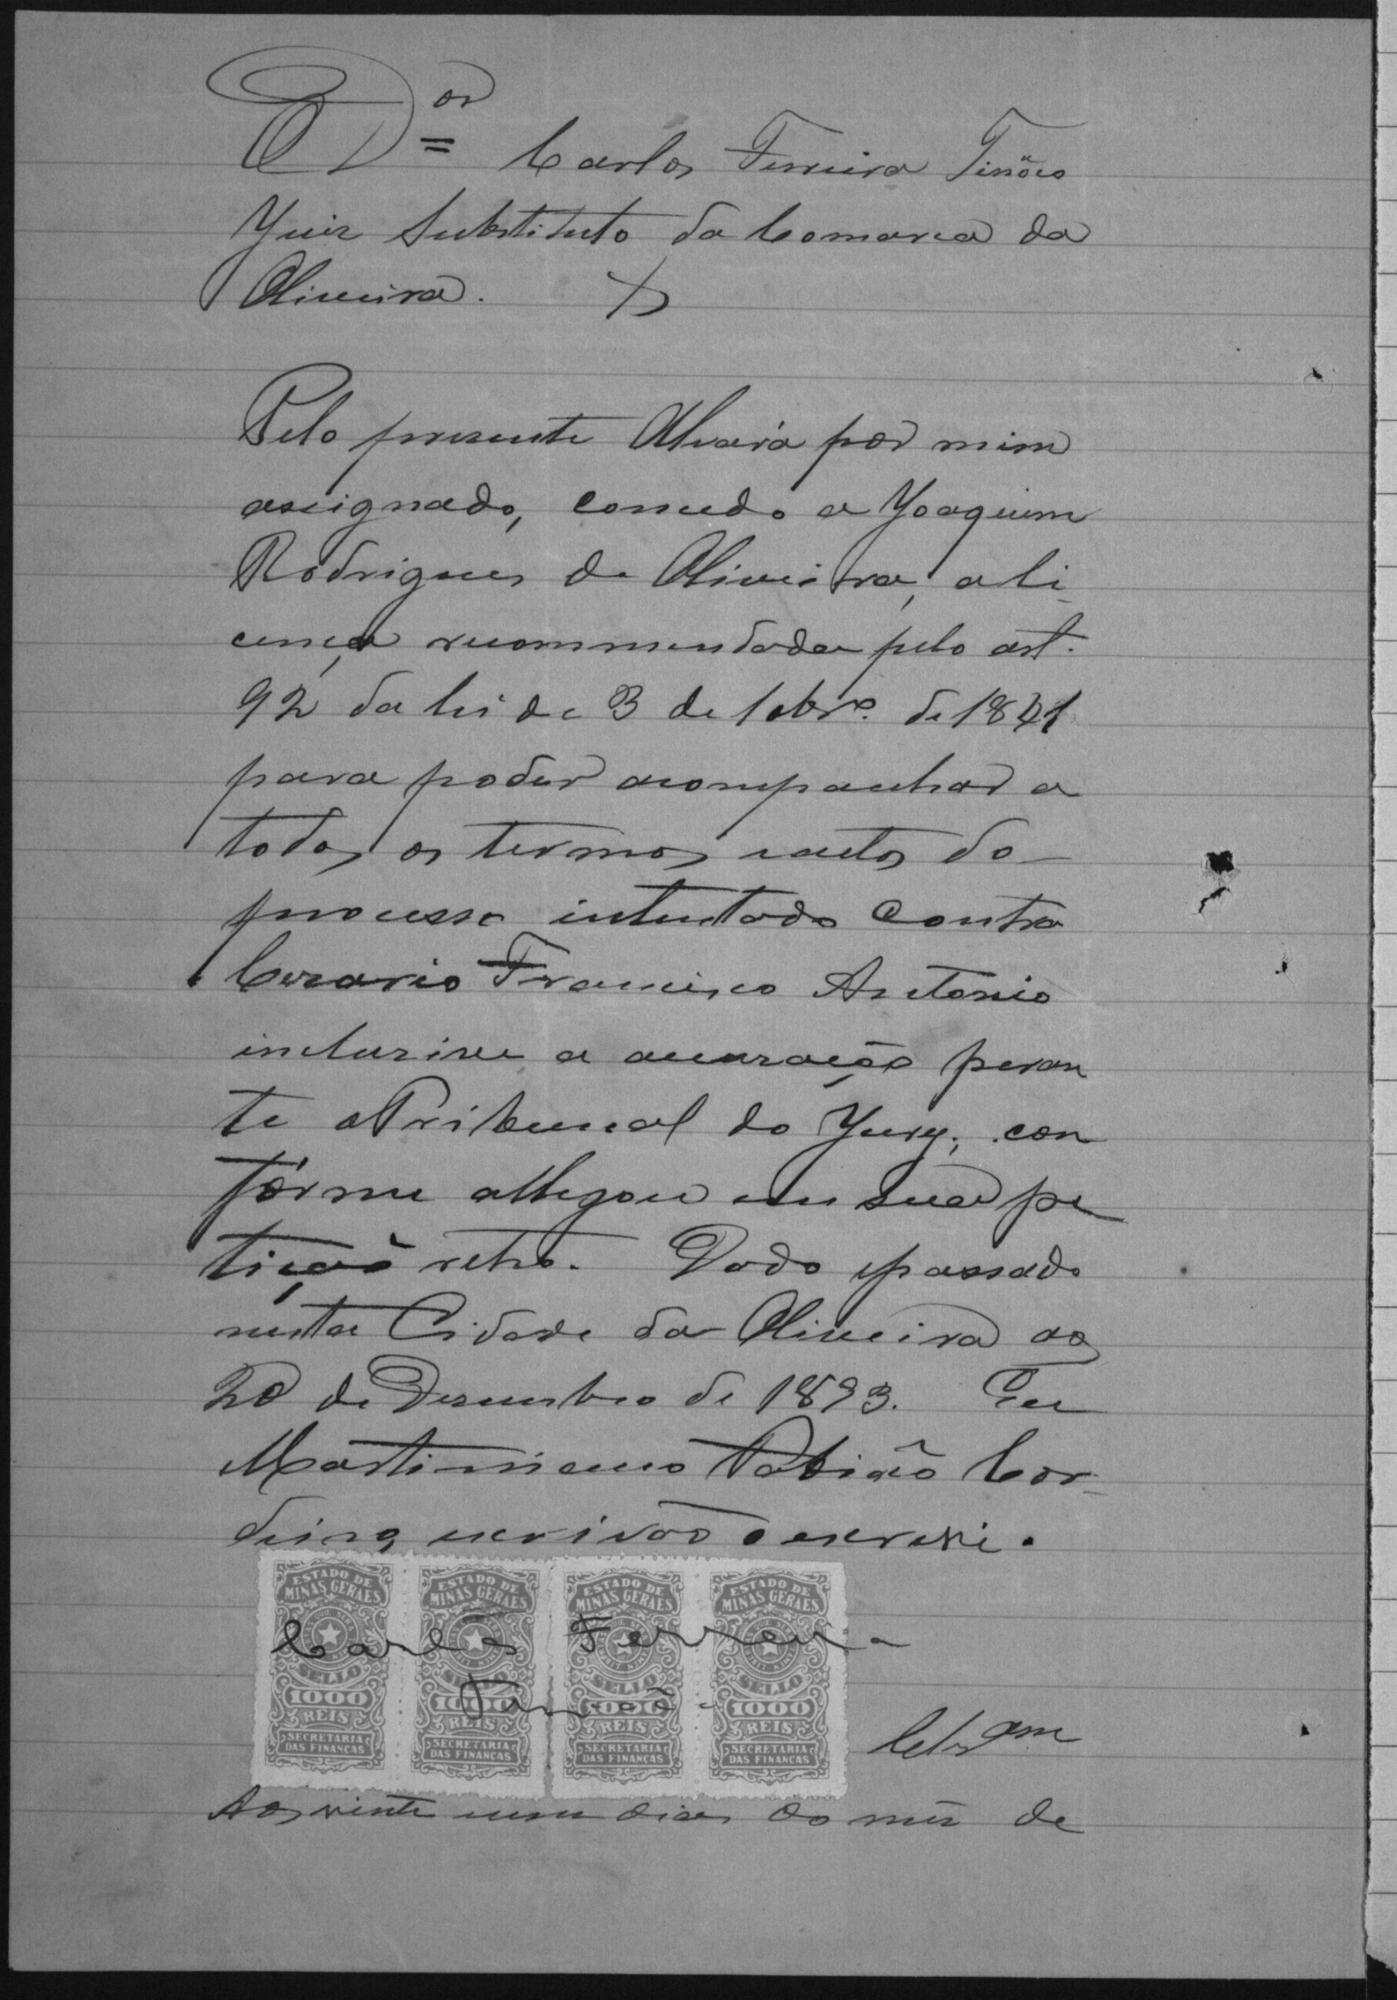 O Dor Carlos Ferreira Tinôco
Juiz Substituto da Comarca da
Oliveira.
Pelo presente Alvará por mim
assignado, concedo a Joaquim
Rodrigues de Oliveira, a li-
cença recommendada pelo art.
92 da lei de 3 de 10brº. de 1841
para poder acompanhar a
todos os termos e actos do
processo intentado contra
Cezario Francisco Antonio
inclusive a accusação peran
te o Tribunal do Jury, con
fórme allegou em sua pe
tição retro. Dado e passado
nesta Cidade da Oliveira aos
20 de Dezembro de 1893. Eu
Martiniano Cor-
deiro, escrivão o escrevi.
ESTADO DE MINAS GERAES ESTADO DE MINAS GERAES ESTADO DE MINAS GERAES ESTADO DE MINAS GERAES
Carlos Ferreira
SELLO SELLO SELLO SELLO
Tinôco
1000 REIS 1000 REIS 1000 REIS 1000 REIS
SECRETARIA DAS FINANÇAS SECRETARIA DAS FINANÇAS SECRETARIA DAS FINANÇAS SECRETARIA DAS FINANÇAS
Aos vinte um dias do mez de